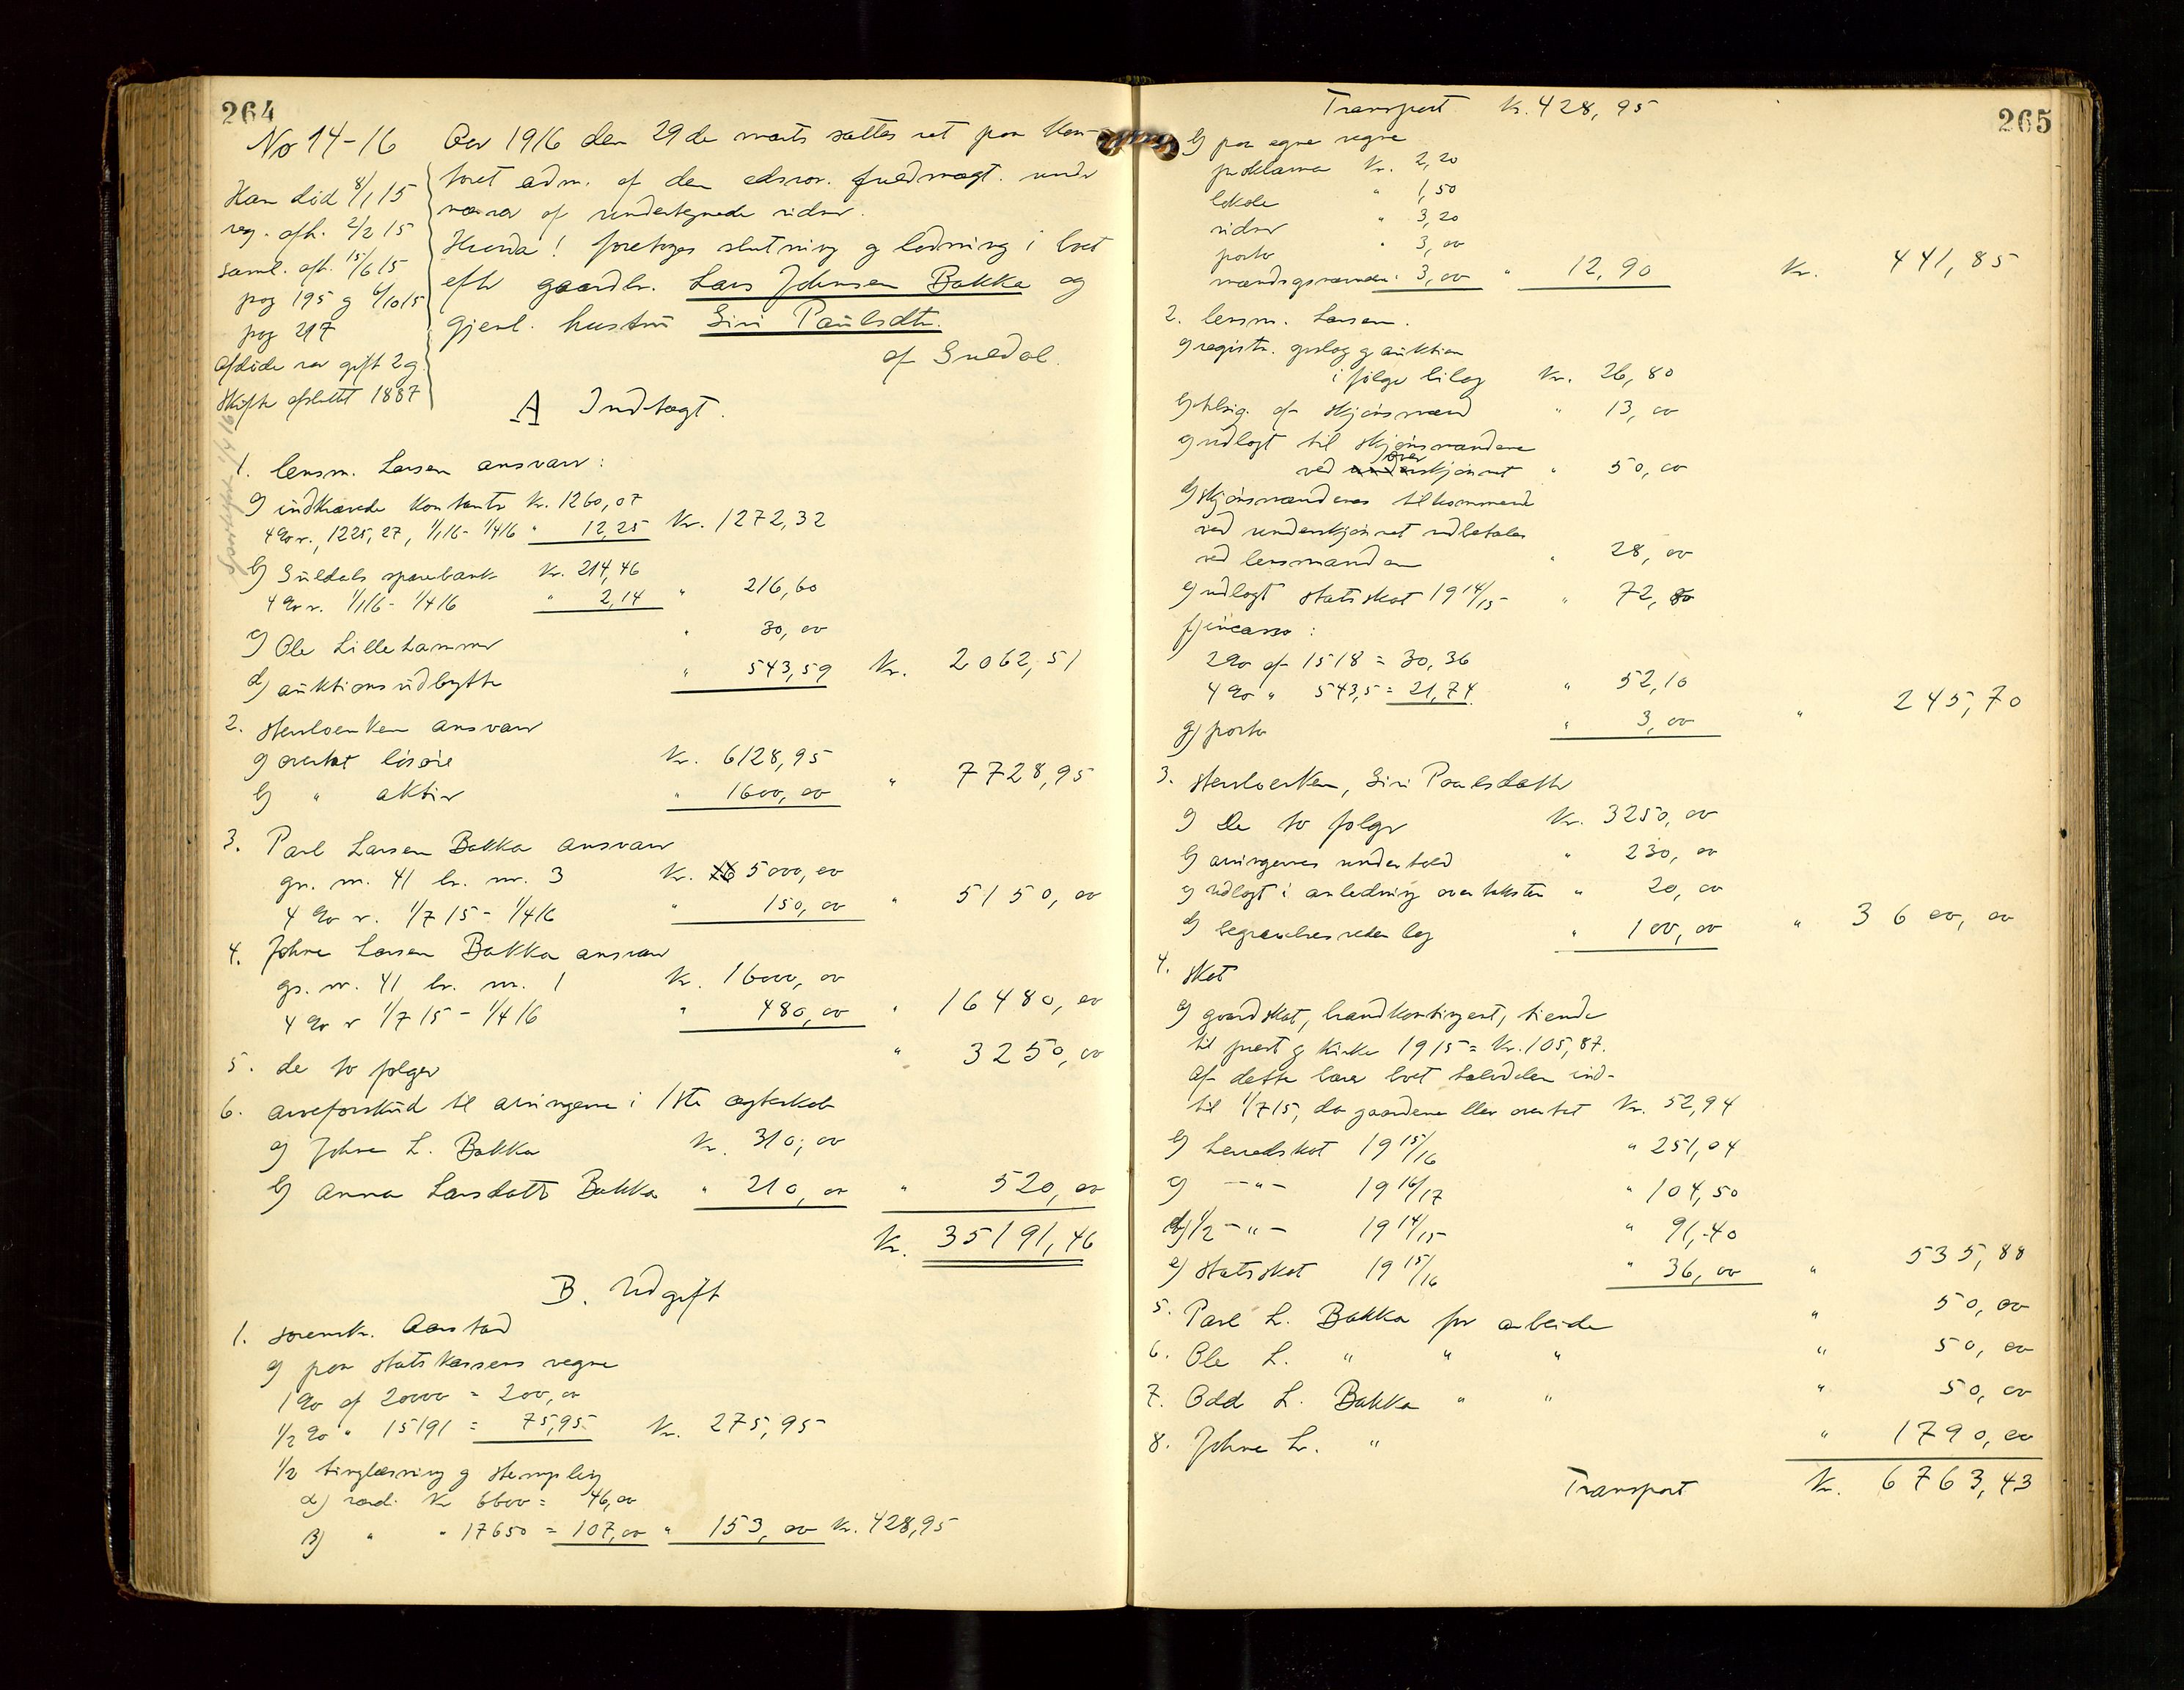 264
No 14-16
Han död 8/1 15
reg. afh. 2/2 15
saml. afh. 15/6 15
pag 195 g 6/10 15
pag 217
Afdöde var gift 2 g.
Skifte afsluttet 1887
Aar 1916 den 29de marts sattes ret paa Kon-
toret adm. af den edsvor. fuldmægt. under
nærvær af undertegnede vidner.
Hvorda! foretoges slutning g lodning i boet
efter gaardbr. Lars Johnsen Bakka og
gjenl. hustru Siri Paulsdtr.
af Suldal.
A Indtægt.
1. lensm. Larsen ansvar:
a) indkrævede Kontanter Kr. 1260,07
4 % r., 1225,27, 1/1 16 - 1/4 16 " 12,25 Kr. 1272,32
b) Suldals sparebank Kr. 214,46
4 % r. 1/1 16 - 1/4 16 " 2,14 " 216,60
c) Ole Lillehammer " 30,00
d) auktionsudbytte " 543,59 Kr. 2062,51
2. Stervboenken ansvar
a) overtat lösöre Kr. 6128,95
b) " aktiv " 1600,00 " 7728,95
3. Paul Larsen Bakka ansvar
gr. nr. 41 br. nr. 3 Kr. 5000,00
4 % r. 1/7 15 - 1/4 16 " 150,00 " 5150,00
4. Johne Larsen Bakka ansvar
gr. nr. 41 br. nr. 1 Kr. 16000,00
4 % r 1/7 15 - 1/4 16 " 480,00 " 16480,00
5. de to folger " 3250,00
6. arveforskud til arvingerne i 1ste ægteskab
a) Johne L. Bakka Kr. 310,00
b) Anna Larsdatter Bakka " 210,00 " 520,00
Kr. 35191,46
B. Udgift
1. sorenskr. Aarstad
a) paa statskassens vegne
1 % af 20000 = 200,00
1/2 % " 15191 = 75,95 Kr. 275,95
1/2 tinglæsning g stempling
α) værdi Kr 6600 = 46,00
β) " " 17650 = 107,00 " 153,00 Kr. 428,95
265
Transport Kr. 428,95
b) paa egne vegne
proklama Kr. 2,20
lokale " 1,50
vidner " 3,20
porto " 3,00
mandgsnævnde " 3,00 " 12,90 Kr. 441,85
2. lensm. Larsen.
a) registr. forslag g auktion
i fölge bilag Kr. 26,80
b) tilsig. af skjönsmænd " 13,00
c) udlagt til skjönsmændene
ved overskjönnet " 50,00
d) skjönsmændenes tilkommende
ved underskjönnet udbetales
ved lensmanden " 28,00
e) udlagt statsskat 19 14/15 " 72,80
f) incasso:
2 % af 1518 = 30,36
4 % " 543,5 = 21,74 " 52,10
g) porto " 3,00 " 245,70
3. Stervboenken, Siri Paulsdatter
a) De to folger Kr. 3250,00
b) arvingernes underhold " 230,00
c) udlagt i anledning overtaksten " 20,00
d) begravelsesvederlag " 100,00 " 3600,00
4. skat
a) gaardskat, brandkontingent, tiende
til prest g kirke 1915 = Kr. 105,87.
Af dette bærer boet halvdelen ind-
til 1/7 15, da gaardene blev overtat Kr. 52,94
b) herredskat 19 15/16 " 251,04
c) -"- 19 16/17 " 104,50
d) 1/2 -"- 19 14/15 " 91,40
e) statsskat 19 15/16 " 36,00 " 535,88
5. Paul L. Bakka for arbeide " 50,00
6. Ole L. " " " " 50,00
7. Odd L. Bakka " " " 50,00
8. Johne L. " " 1790,00
Transport Kr. 6763,43